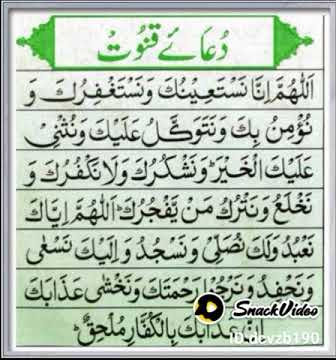 دُعَائے قنُوت
اَللّٰهُمَّ اِنَّا نَسْتَعِيْنُكَ وَنَسْتَغْفِرُكَ وَ
نُؤْمِنُ بِكَ وَنَتَوَكَّلُ عَلَيْكَ وَنُثْنِیْ
عَلَيْكَ الْخَيْرَ وَنَشْكُرُكَ وَلَا نَكْفُرُكَ وَ
نَخْلَعُ وَنَتْرُكُ مَنْ يَّفْجُرُكَ اَللّٰهُمَّ اِيَّاكَ
نَعْبُدُ وَلَكَ نُصَلِّیْ وَنَسْجُدُ وَاِلَيْكَ نَسْعٰی
وَنَحْفِدُ وَنَرْجُوْا رَحْمَتَكَ وَنَخْشٰی عَذَابَكَ
اِنَّ عَذَابَكَ بِالْكُفَّارِ مُلْحِقٌ
SnackVideo
ID:dcvzb190